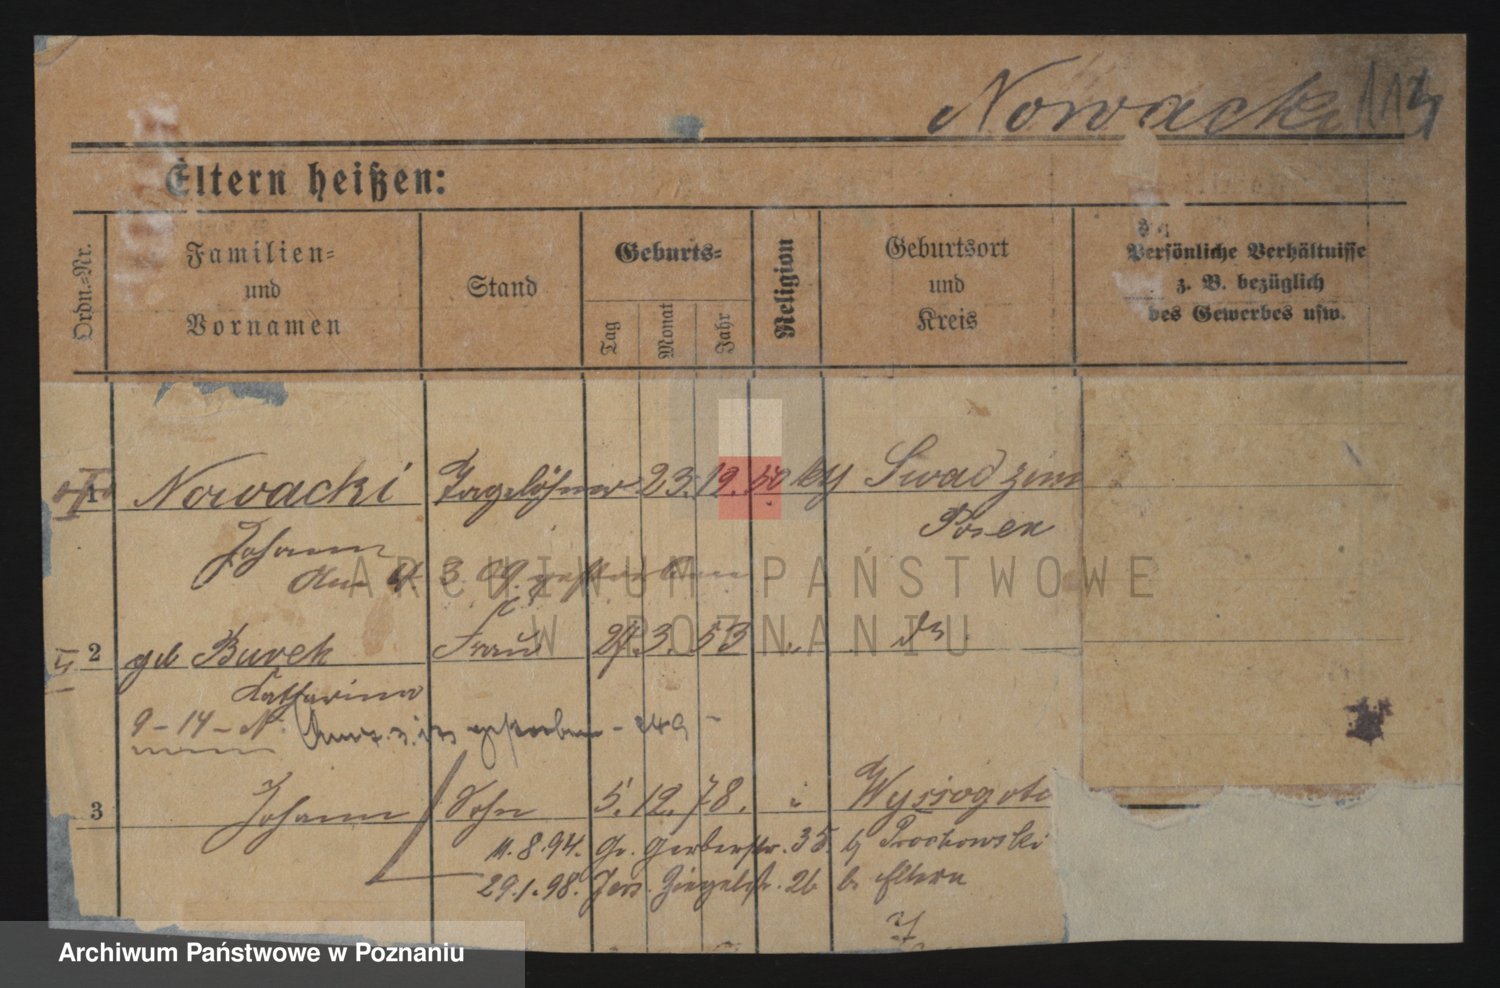 Nowacki 113
Eltern heißen:
Ordn.=Nr.
Familien=
und
Vornamen
Stand
Geburts=
Tag
Monat
Jahr
Religion
Geburtsort
und
Kreis
Persönliche Verhältnisse
z. B. bezüglich
des Gewerbes usw.
1 Nowacki Tagelöhner 23. 12. 50 kth Swadzim
Johann Posen
Am 3. 09. gestorben
2 geb Burek Frau 27. 3. 53 " do
Katharina
9-14-N. gestorben - 249 -
3 Johann Sohn 5. 12. 78. " Wyssogoto
11.8.94. Gr. Gerberstr. 35. b Prochowski
29.1.98. Jers. Ziegelstr. 26 b. Eltern
ARCHIWUM PAŃSTWOWE
W POZNANIU
Archiwum Państwowe w Poznaniu